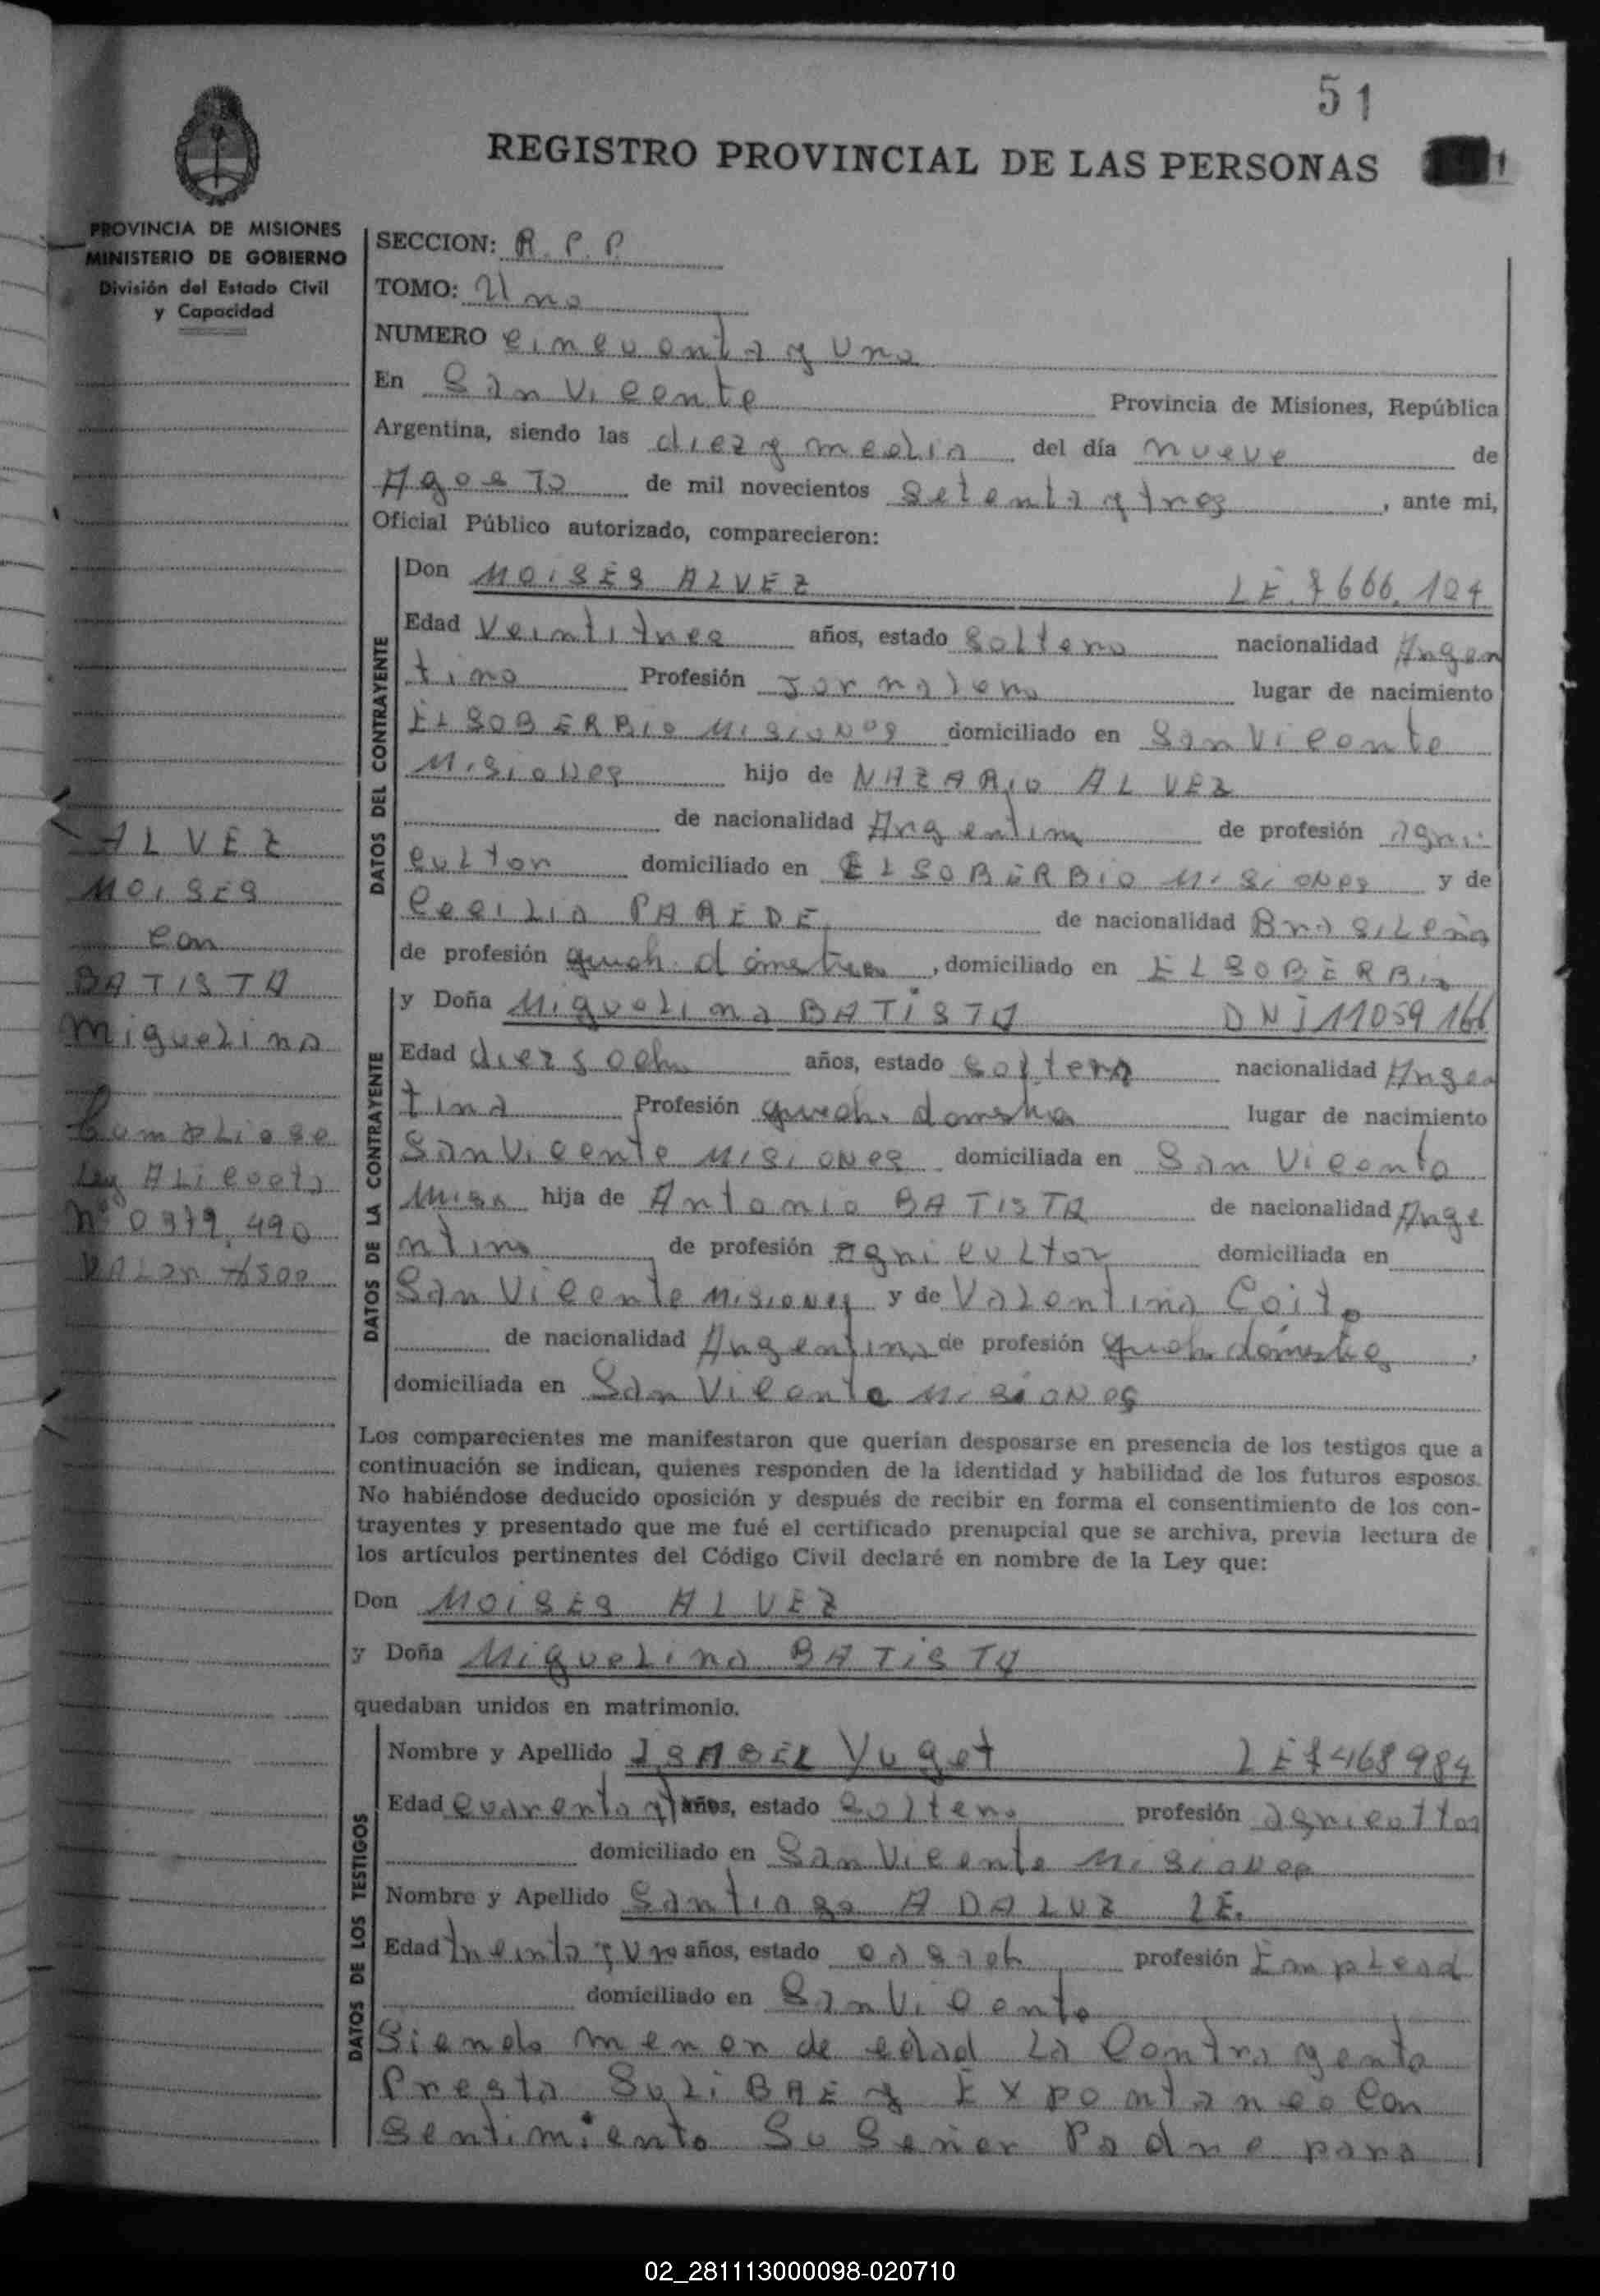 51
REGISTRO PROVINCIAL DE LAS PERSONAS
PROVINCIA DE MISIONES
MINISTERIO DE GOBIERNO
División del Estado Civil
y Capacidad
SECCION: R. P. P.
TOMO: Uno
NUMERO cincuenta y Uno
En San Vicente Provincia de Misiones, República
Argentina, siendo las diez y media del día nueve de
Agosto de mil novecientos Setenta y tres, ante mi,
Oficial Público autorizado, comparecieron:
DATOS DEL CONTRAYENTE
Don MOISES ALVEZ LE.
Edad Veintitres años, estado Soltero nacionalidad Argen
tino Profesión Jornalero lugar de nacimiento
EL SOBERBIO MISIONES domiciliado en San Vicente
MISIONES hijo de NAZARIO ALVEZ
de nacionalidad Argentino de profesión agri
cultor domiciliado en EL SOBERBIO MISIONES y de
Cecilia PAREDE de nacionalidad Brasileña
de profesión domiciliado en EL SOBERBIO
DATOS DE LA CONTRAYENTE
y Doña Miguelina BATISTA DNI 11059166
Edad años, estado soltera nacionalidad Argen
tina Profesión lugar de nacimiento
San Vicente MISIONES domiciliada en San Vicente
Misn hija de Antonio BATISTA de nacionalidad Arge
ntino de profesión agricultor domiciliada en
San Vicente MISIONES y de Valentina Coito
de nacionalidad Argentina de profesión ,
domiciliada en San Vicente MISIONES
Los comparecientes me manifestaron que querían desposarse en presencia de los testigos que a
continuación se indican, quienes responden de la identidad y habilidad de los futuros esposos.
No habiéndose deducido oposición y después de recibir en forma el consentimiento de los con-
trayentes y presentado que me fué el certificado prenupcial que se archiva, previa lectura de
los artículos pertinentes del Código Civil declaré en nombre de la Ley que:
Don MOISES ALVEZ
y Doña Miguelina BATISTA
quedaban unidos en matrimonio.
DATOS DE LOS TESTIGOS
Nombre y Apellido ISABEL Yuget LE
Edad cuarenta y años, estado soltero profesión agricultor
domiciliado en San Vicente MISIONES
Nombre y Apellido Santiago A DALUZ LE.
Edad treinta y Uno años, estado profesión Emplead
domiciliado en San Vicente
Siendo menor de edad La Contrayente
Presta Su LiBRE y Expontaneo Con
sentimiento Su Señor Padre para
ALVEZ
MOISES
con
BATISTA
Miguelina
Cumpliose
Ley Alicuota
Nº 0379.490
02_281113000098-020710